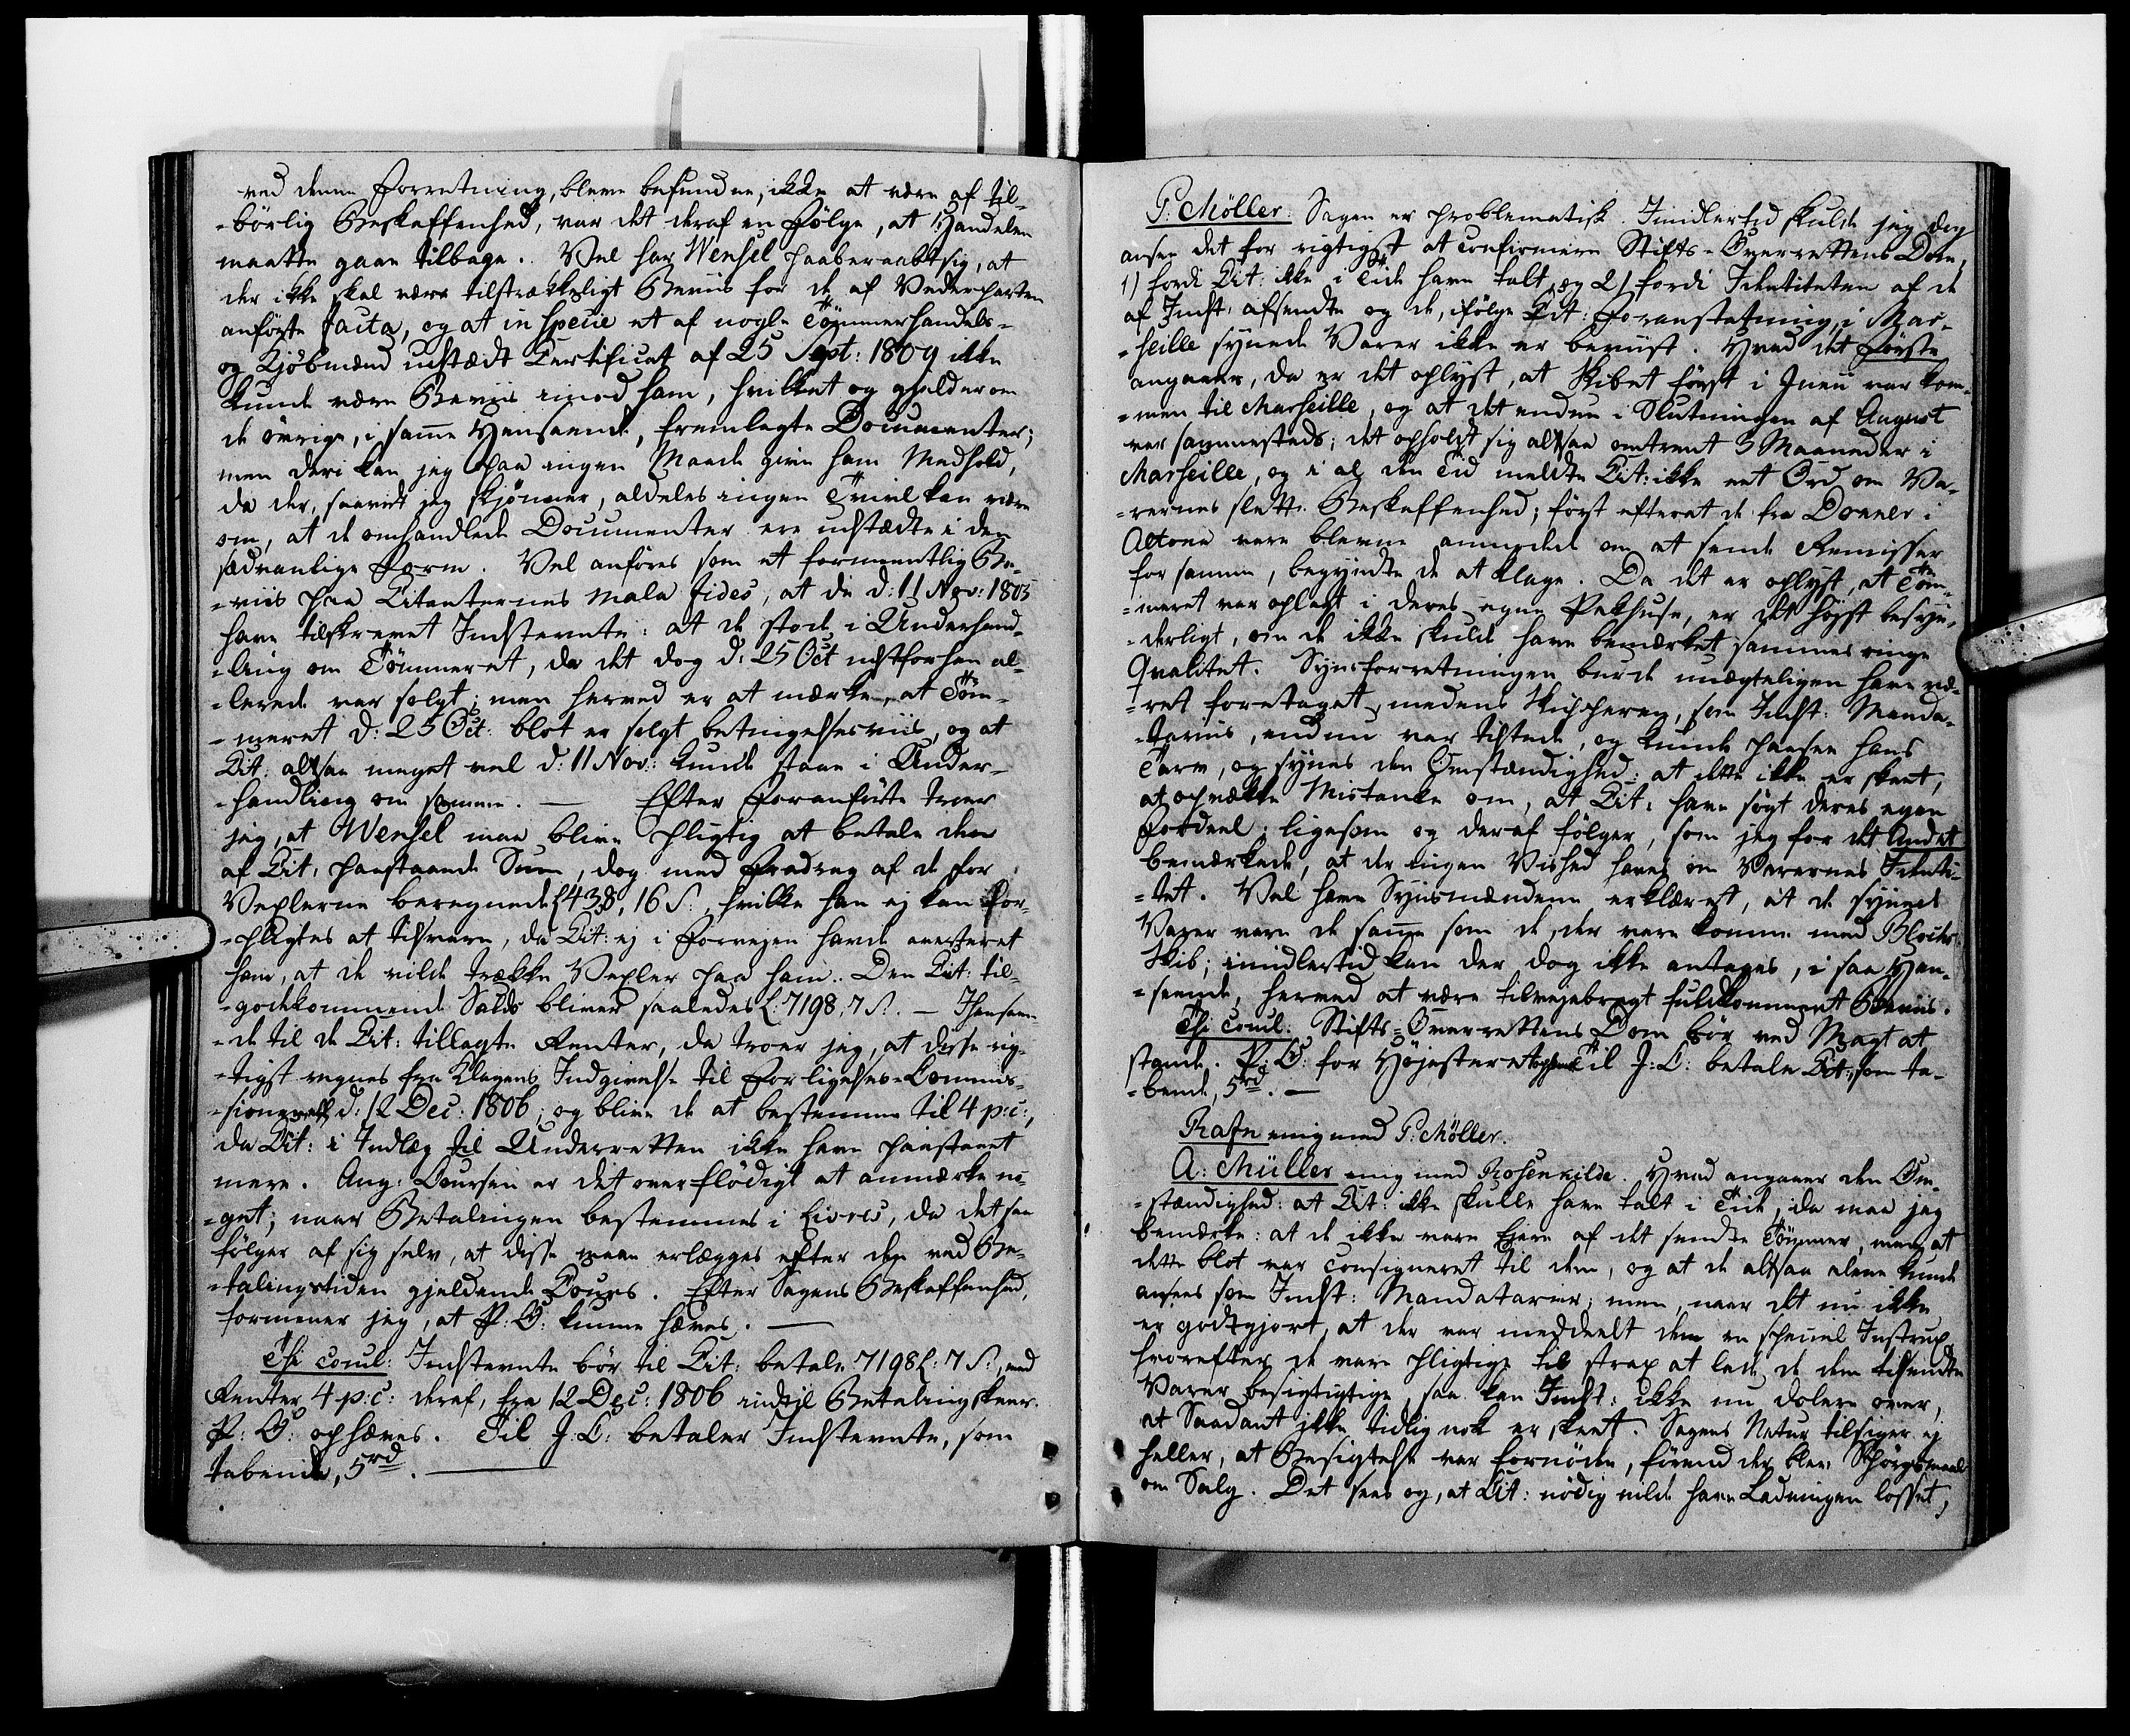 ved denne Forretning, bleve befundne, ikke at være af til-
-börlig Beskaffenhed, var det deraf en Fölge, at Handelen
maatte gaae tilbage. Vel har Wensel paaberaabt sig, at
der ikke skal være tilstrækkeligt Beviis for de af Vederparten
anförte facta, og at in specie et af nogle Tömmerhandels-
og Kjöbmænd udstædt Certificat af 25 Sept: 1809 ikke
kunde være Beviis imod ham, hvilket og gjelder om
de övrige, i samme Henseende, fremlagte Documenter;
men deri kan jeg paa ingen Maade give ham Medhold,
da der, saavidt jeg skjönner, aldeles ingen Tvivl kan være
om, at de omhandlede Documenter ere udstædte i den
sædvanlige Form. Vel anföres som et formeentlig Be-
-viis paa Citanternes mala fides, at de d: 11 Nov: 1805
have tilskrevet Indstevnte: at de stode i Underhand-
-ling om Tömmeret, da det dog d: 25 Oct nestforhen al-
-lerede var solgt; men herved er at mærke, at Töm-
-meret d: 25 Oct: blot er solgt betingelsesviis, og at
Cit: altsaa meget vel d: 11 Nov: kunde staae i Under-
-handling om samme. — Efter Foranförte troer
jeg, at Wensel maa blive pligtig at betale den
af Cit: paastaaende Sum, dog med Fradrag af de for
Vexlerne beregnede £438, 16 S:, hvilke han ej kan for-
-pligtes at tilsvare, da Cit: ej i Forvejen havde averteret
ham, at de vilde trække Vexler paa ham. Den Cit: til-
-godekommende Saldo bliver saaledes £: 7198, 7 S:. — Henseen-
-de til de Cit: tillagte Renter, da troer jeg, at disse rig-
-tigst regnes fra Klagens Indgivelse til Forligelses-Commis-
-sionen d: 12 Dec: 1806; og blive de at bestemme til 4 p:c:,
da Cit: i Indlæg til Underretten ikke have paastaaet
mere. Ang: Coursen er det overflödigt at anmærke no-
-get; naar Betalingen bestemmes i Livres, da det saa
fölger af sig selv, at disse maae erlægges efter den ved Be-
-talingstiden gjeldende Cours. Efter Sagens Beskaffenhed,
formener jeg, at P: O: kunne hæves. —
Thi concl: Indstevnte bör til Cit: betale 7198£: 7 S:, med
Renter 4 p:c: deraf, fra 12 Dec: 1806 indtil Betaling skeer.
P: O: ophæves. Til J: C: betaler Indstevnte, som
tabende, 5 rd. —
P: Möller: Sagen er problematisk. Imidlertid skulde jeg dog
ansee det for rigtigst at confirmere Stifts-Overrettens Dom,
1) fordi Cit: ikke i Tide have talt, og 2) fordi Identiteten af de
af Indst: afsendte og de, ifölge Cit: Foranstaltning, i Mar-
-seille synede Varer ikke er beviist. Hvad det förste
angaaer, da er det oplyst, at Skibet först i Junii var kom-
-men til Marseille, og at det endnu i Slutningen af August
var sammesteds; det opholdt sig altsaa omtrent 3 Maaneder i
Marseille, og i al den Tid meldte Cit: ikke eet Ord om Va-
-rernes slette Beskaffenhed; först efterat de fra Donner i
Altona vare blevne anmodede om at sende Remisser
for samme, begyndte de at klage. Da det er oplyst, at Töm-
-meret var oplagt i deres egne Pakhuse, er det höjst besyn-
-derligt, om de ikke skulde have bemærket sammes ringe
Qvalitet. Synsforretningen burde unægteligen have væ-
-ret foretaget, medens Skipperen, som Indst: Manda-
-tarius, endnu var tilstede, og kunde paasee hans
Tarv, og synes den Omstændighed: at dette ikke er skeet,
at opvække Mistanke om, at Cit: have sögt deres egen
Fordeel; ligesom og deraf fölger, som jeg for det Andet
bemærkede, at der ingen Vished haves om Varernes Identi-
-tet. Vel have Synsmændene erklæret, at de synede
Varer vare de samme som de, der vare komne med Blochs
Skib; imidlertid kan der dog ikke antages, i saa Hen-
-seende, herved at være tilvejebragt fuldkomment Beviis.
Thi concl: Stifts-Overrettens Dom bör ved Magt at
stande. P: O: for Höjesteret ophæves. Til J: C: betale Cit:, som ta-
-bende, 5 rd. —
Rafn enig med P: Möller.
A: Müller enig med Rosenvilde. Hvad angaaer den Om-
-stændighed: at Cit: ikke skulle have talt i Tide, da maa jeg
bemærke: at de ikke vare Ejere af det sendte Tömmer, men at
dette blot var consigneret til dem, og at de altsaa alene kunde
ansees som Indst: Mandatarier; men, naar det nu ikke
er godtgjort, at der var meddeelt dem en speciel Instrux,
hvorefter de vare pligtige til strax at lade de dem tilsendte
Varer besigtigtige, saa kan Indst: ikke nu dolere over,
at Saadant ikke tidlig nok er skeet. Sagens Natur tilsiger ej
heller, at Besigtelse var fornöden, förend der blev Spörgsmaal
om Salg. Det sees og, at Cit: nödig vilde have Ladningen losset,